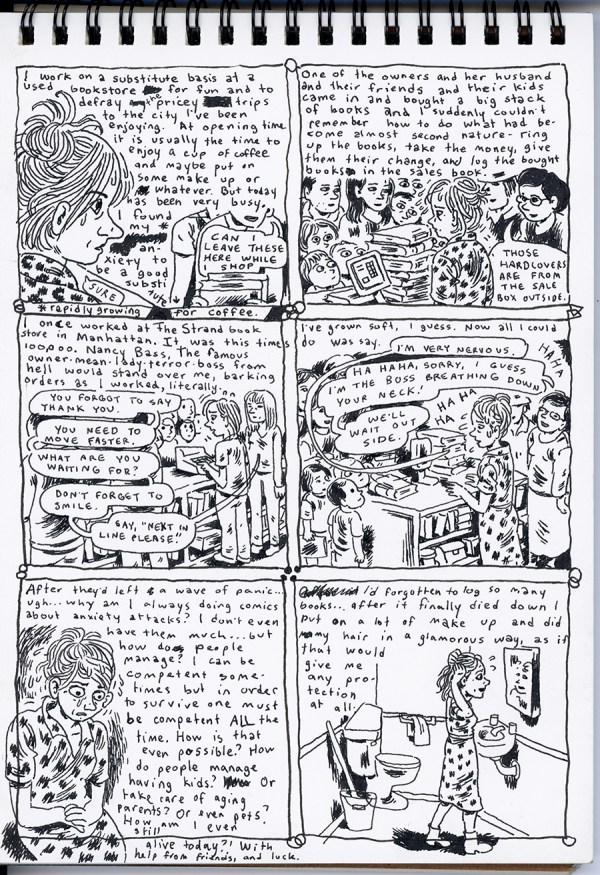 I work on a substitute basis at a
used bookstore for fun and to
defray the pricey trips
to the city I've been
enjoying. At opening time
it is usually the time to
enjoy a cup of coffee
and maybe put on
some make up or
whatever. But today
has been very busy.
I found
my *
an-
xiety to
be a good
substi
tute
SURE
CAN I
LEAVE THESE
HERE WHILE
I SHOP
*rapidly growing
for coffee.
One of the owners and her husband
and their friends and their kids
came in and bought a big stack
of books and I suddenly couldn't
remember how to do what had be-
come almost second nature- ring
up the books, take the money, give
them their change, and log the bought
books in the sales book.
THOSE
HARDCOVERS
ARE FROM
THE SALE
BOX OUTSIDE.
I once worked at The Strand book
store in Manhattan. It was this times
100,000. Nancy Bass, The famous
owner-mean-lady-terror-boss from
hell would stand over me, barking
orders as I worked, literally.
YOU FORGOT TO SAY
THANK YOU.
YOU NEED TO
MOVE FASTER.
WHAT ARE YOU
WAITING FOR?
DON'T FORGET TO
SMILE.
SAY, "NEXT IN
LINE PLEASE!"
I've grown soft, I guess. Now all I could
do was say.
I'M VERY NERVOUS.
HAHA
HA HAHA, SORRY, I GUESS
I'M THE BOSS BREATHING DOWN
YOUR NECK!
HA HA
HA
WE'LL
WAIT OUT
SIDE.
After they'd left a wave of panic...
ugh... why am I always doing comics
about anxiety attacks? I don't even
have them much... but
how do people
manage? I can be
competent some-
times but in order
to survive one must
be competent ALL the
time. How is that
even possible? How
do people manage
having kids? Or
take care of aging
parents? Or even pets?
How am I even
still
alive today?! With
help from friends, and luck.
I'd forgotten to log so many
books... after it finally died down I
put on a lot of make up and did
my hair in a glamorous way, as if
that would
give me
any pro-
tection
at all.